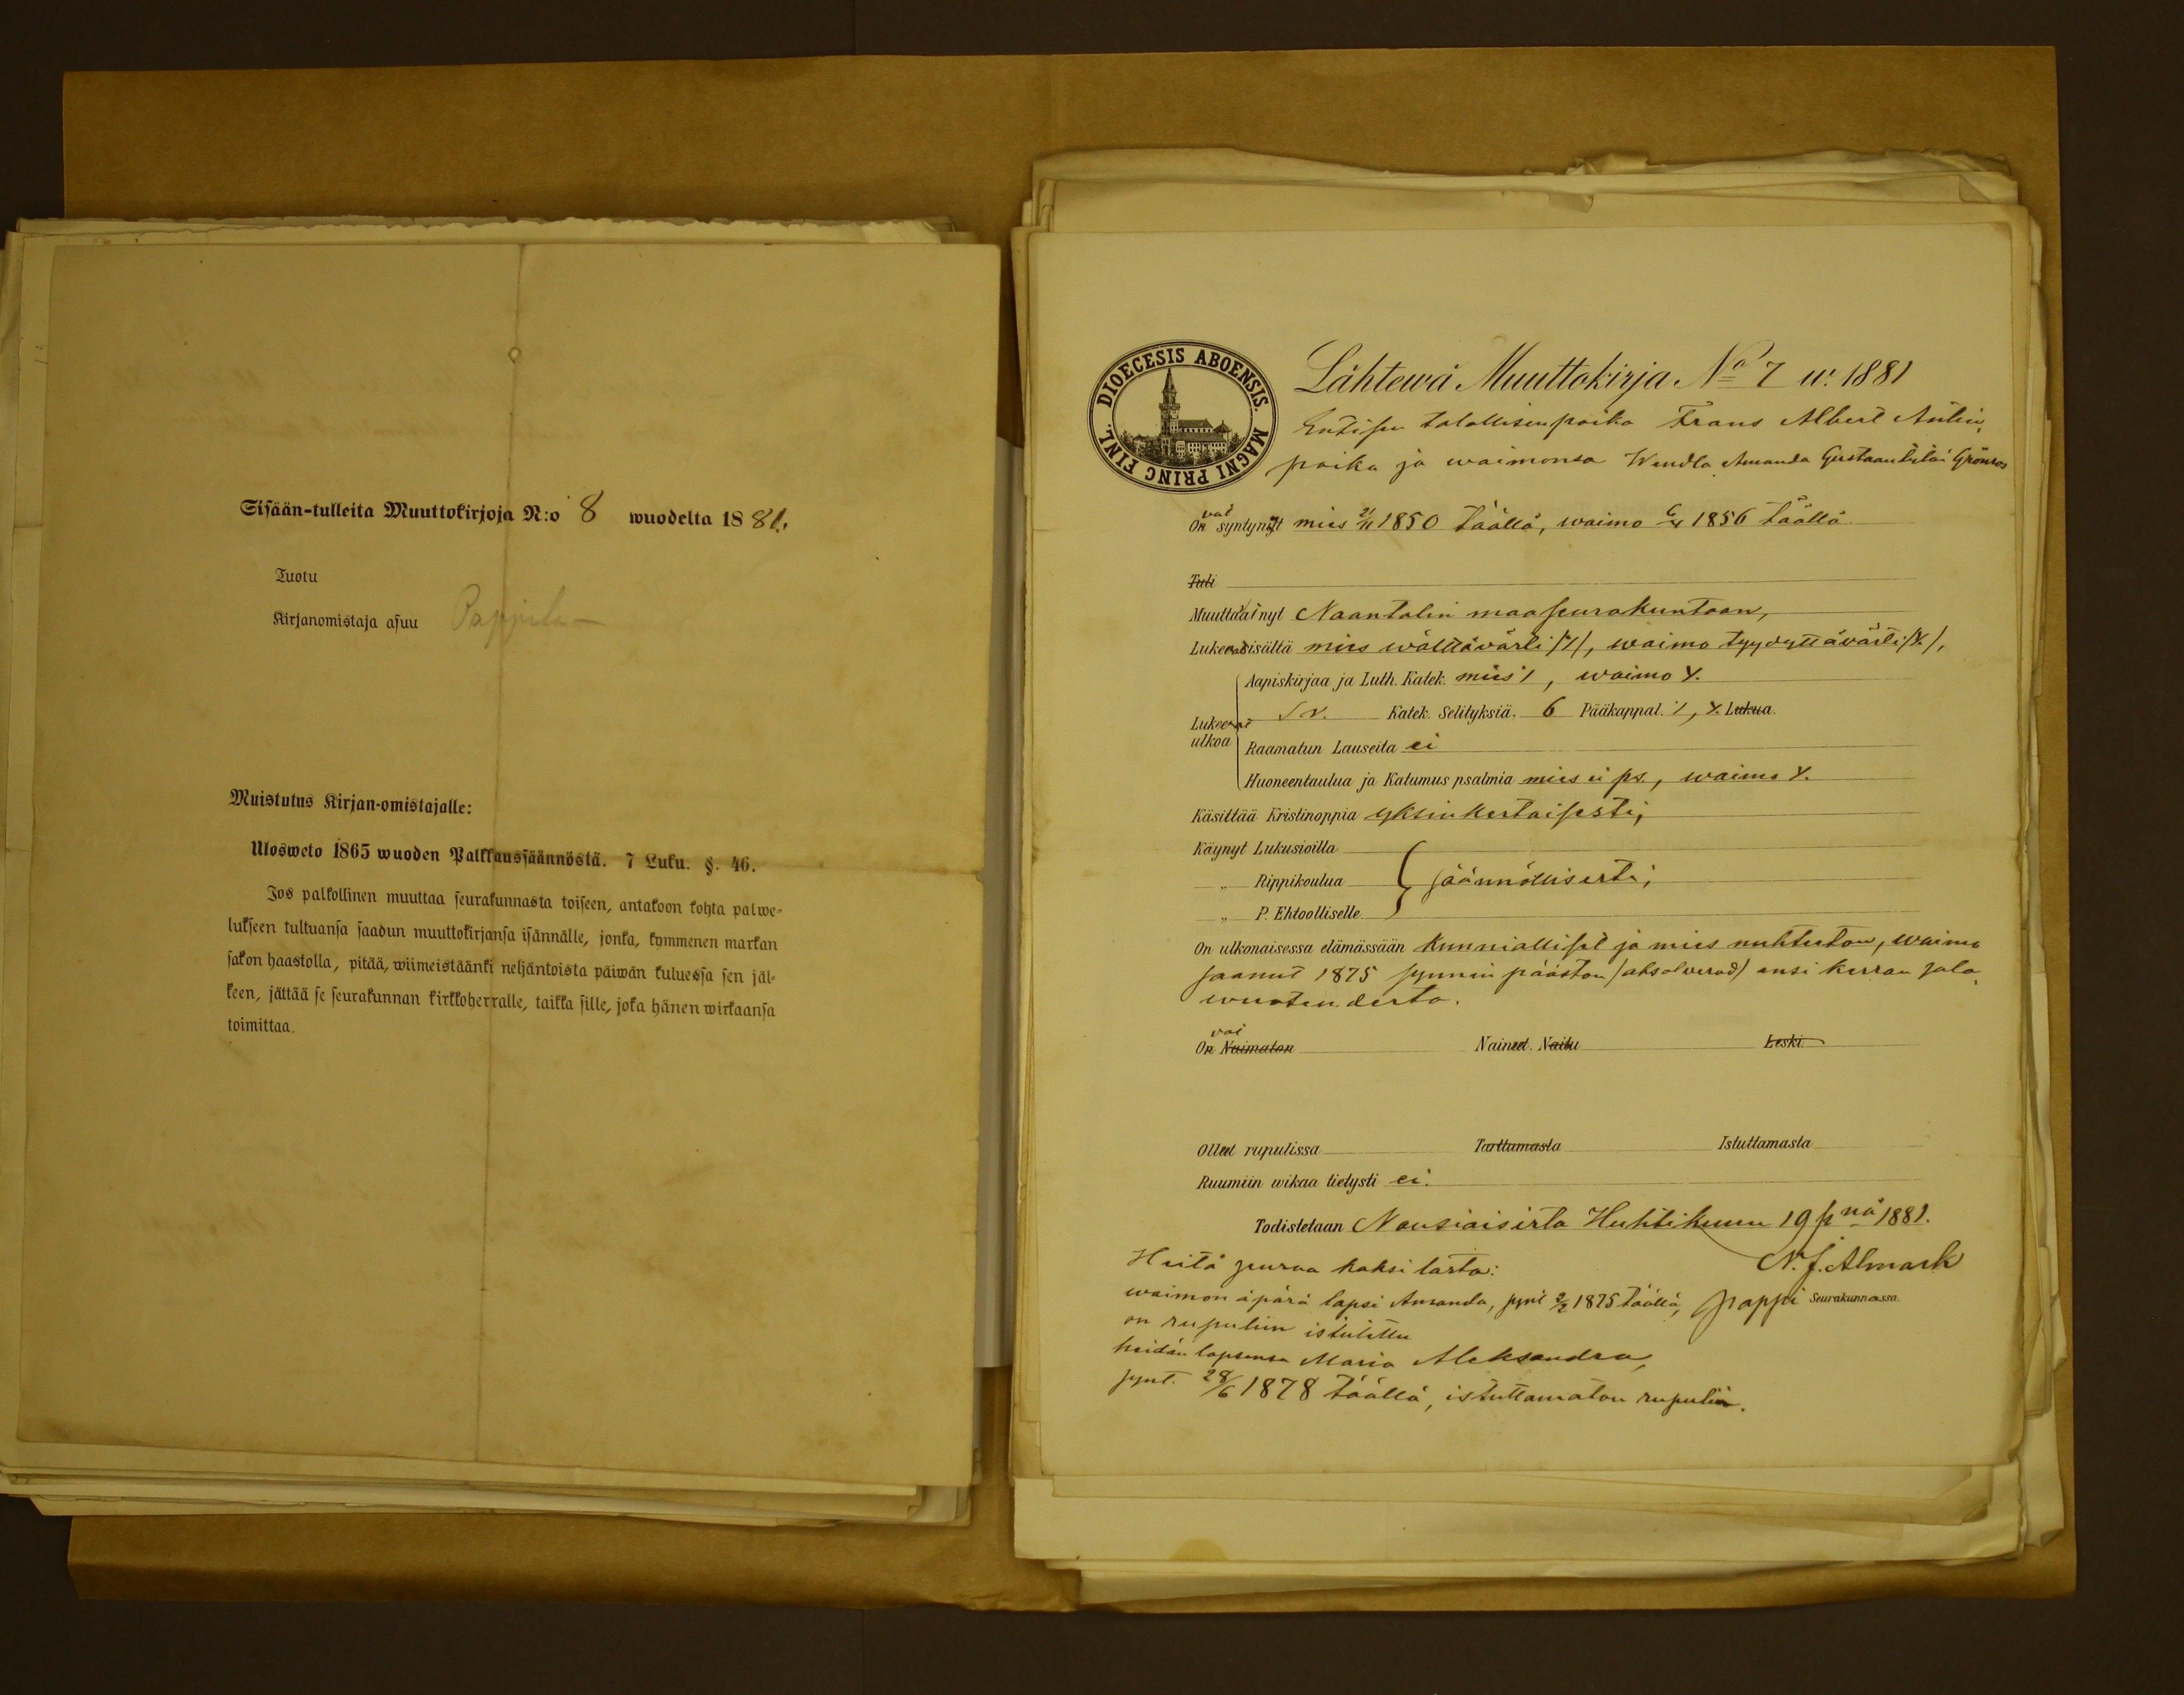 Sisään-tulleita Muuttokirjoja N:o 8 wuodelta 1881.
Tuotu
Kirjanomistaja asuu Pappila
Muistutus Kirjan-omistajalle:
Ulosweto 1865 wuoden Palkkaussäännöstä. 7 Luku. §. 46.
Jos palkollinen muuttaa seurakunnasta toiseen, antakoon kohta palwe-
lukseen tultuansa saadun muuttokirjansa isännälle, jonka, kymmenen markan
sakon haastolla, pitää, wiimeistäänki neljäntoista päiwän kuluessa sen jäl-
keen, jättää se seurakunnan kirkkoherralle, taikka sille, joka hänen wirkaansa
toimittaa.
DIOECESIS ABOENSIS. MAGNI PRINC FINL.
Lähtewä Muuttokirja No 7 w. 1881
Entisen talollisenpoika Frans Albert Antin
poika ja waimonsa Wendla Amanda Gustaantytär Grönros
vat
On syntynyt mies 2/11 1850 täällä, waimo 1856 täällä.
Tuli
Muuttavat nyt Naantalin maaseurakuntaan,
Lukevat sisältä mies wälttävästi /1/, waimo tyydyttävästi /Y./,
Aapiskirjaa ja Luth. Katek. mies 1, waimo Y.
Lukeevat
ulkoa
Katek. Selityksiä. 6 Pääkappal. 1, Y. Lukua.
Raamatun Lauseita ei
Huoneentaulua ja Katumus psalmia mies ei ps., waimo Y.
Käsittää Kristinoppia yksinkertaisesti,
Käynyt Lukusioilla
„ Rippikoulua säännöllisesti;
„ P. Ehtoolliselle
On ulkonaisessa elämässään kunnialliset ja mies nuhteeton, waimo
saanut 1875 synnin päästön /absolverad/ ensi kerran sala
wuoteudesta.
vat
On Naimaton Naineet. Naitu Leski
Olleet rupulissa Tarttamasta Istuttamasta
Ruumiin wikaa tietysti ei.
Todistetaan Nousiaisista Huhtikuun 19 pnä 1881.
N. J. Almark
pappi Seurakunnassa.
Heitä seuraa kaksi lasta:
waimon äpärä lapsi Amanda, synt 2/2 1875 täällä,
on rupuliin istutettu
heidän lapsensa Maria Aleksandra,
synt. 28/6 1878 täällä, istuttamaton rupulia.